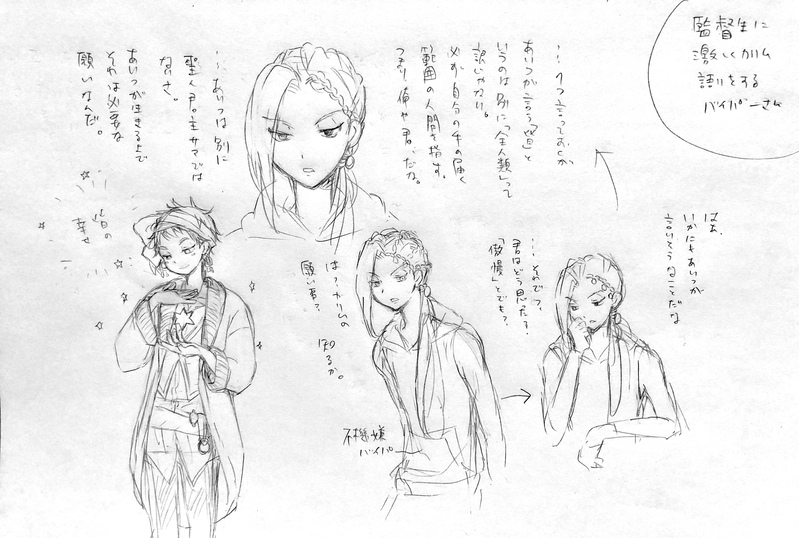 監督生に
激しくカリム
語りをする
バイパーさん
は?カリムの
願い事?
知るか。
不機嫌
バイパー
はぁ、
いかにもあいつが
言いそうなことだな
……それで?、
君はどう思った?
「傲慢」とでも?
…1つ言っておくが
あいつが言う「皆」と
いうのは別に「全人類」って
訳じゃない。
必ず自分の手の届く
範囲の人間を指す。
つまり俺や君、だな。
…あいつは別に
聖人君主サマでは
ないさ。
あいつが生きる上で
それは必要な
願いなんだ。
皆の
幸せ